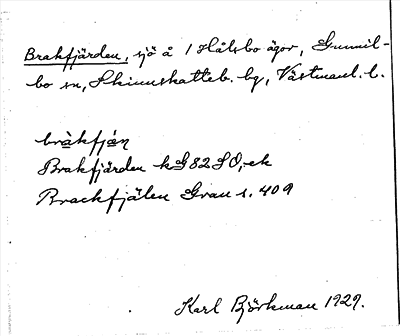 Brakfjärden, sjö å 1 Hålsbo ägor, Gunnil-
bo sn, Skinnskatteb. bg, Västmanl. l.
bràkfján
Brakfjärden kG82SO, ek
Brackfjälen Grau s. 409
Karl Björkman 1929.